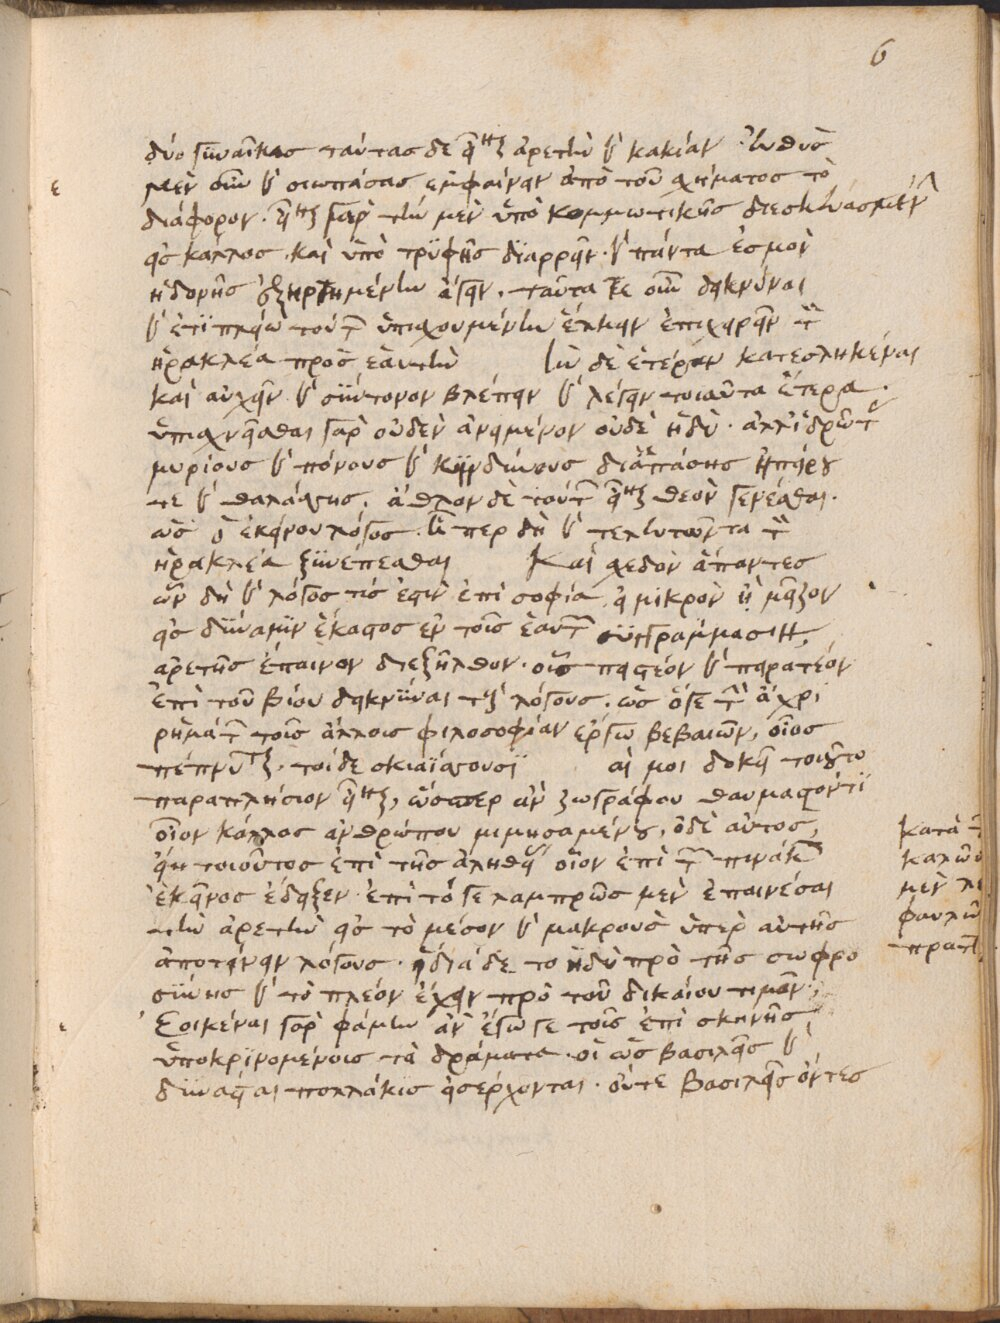 6
δύο γυναῖκας ταύτας δὲ εἶναι ἀρετὴν καὶ κακίαν. εὐθὺς
μὲν οὖν καὶ σιωπώσας ἐμφαίνειν ἀπὸ τοῦ σχήματος τὸ
διάφορον. εἶναι γὰρ τὴν μὲν ὑπὸ κομμωτικῆς διεσκευασμένην
εἰς κάλλος. καὶ ὑπὸ τρυφῆς διαρρεῖν. καὶ πάντα ἑσμὸν
ἡδονῆς ἐξηρτημένην ἄγειν. ταῦτά τε οὖν δεικνύναι
καὶ ἔτι πλείω τούτων ὑπισχουμένην ἕλκειν ἐπιχειρεῖν τὸν
ἡρακλέα πρὸς ἑαυτήν τὴν δὲ ἑτέραν κατεσκληκέναι
καὶ αὐχμεῖν καὶ σύντονον βλέπειν καὶ λέγειν τοιαῦτα ἕτερα.
ὑπισχνεῖσθαι γὰρ οὐδὲν ἀνειμένον οὐδὲ ἡδύ. ἀλλ' ἱδρῶτας
μυρίους καὶ πόνους καὶ κινδύνους διὰ πάσης ἠπείρου
τε καὶ θαλάσσης. ἆθλον δὲ τούτων εἶναι θεὸν γενέσθαι.
ὡς ὁ ἐκείνου λόγος. ᾧπερ δὴ καὶ τελευτῶντα τὸν
ἡρακλέα ξυνέπεσθαι Καὶ σχεδὸν ἅπαντες
ὧν δὴ καὶ λόγος τίς ἐστιν ἐπὶ σοφίᾳ. ἢ μικρὸν ἢ μεῖζον
εἰς δύναμιν ἕκαστος ἐν τοῖς ἑαυτοῦ συγγράμμασιν,
ἀρετῆς ἔπαινον διεξῆλθον. οἷς πειστέον καὶ πειρατέον
ἐπὶ τοῦ βίου δεικνύναι τοὺς λόγους. ὡς ὅγε τὴν ἄχρι
ρημάτων τοῖς ἄλλοις φιλοσοφίαν ἔργῳ βεβαιῶν, οἷος
πέπνυται. τοὶ δὲ σκιαὶ ἀΐσσουσι αί μοι δοκεῖ τὸ τοιοῦτο
παραπλήσιον εἶναι, ὥσπερ ἂν ζωγράφου θαυμαστόν τι
οἷον κάλλος ἀνθρώπου μιμησαμένου, ὁ δὲ αὐτὸς,
εἴη τοιοῦτος ἐπὶ τῆς ἀληθείας οἷον ἐπὶ τῶν πινάκων
ἐκεῖνος ἔδειξεν. ἐπεὶ τό γε λαμπρῶς μὲν ἐπαινέσαι
τὴν ἀρετὴν εἰς τὸ μέσον καὶ μακροὺς ὑπὲρ αὐτῆς
ἀποτείνειν λόγους. ἰδίᾳ δὲ τὸ ἡδὺ πρὸ τῆς σωφρο
σύνης καὶ τὸ πλέον ἔχειν πρὸ τοῦ δικαίου τιμᾶν,
Ἐοικέναι γὰρ φαίην ἂν ἔγωγε τοῖς ἐπὶ σκηνῆς
ὑποκρινομένοις τὰ δράματα. οἳ ὡς βασιλεῖς καὶ
δυνάσται πολλάκις εἰσέρχονται. οὔτε βασιλεῖς ὄντες
κατὰ
καλῶ
μὲν
φαυλω
πρατ